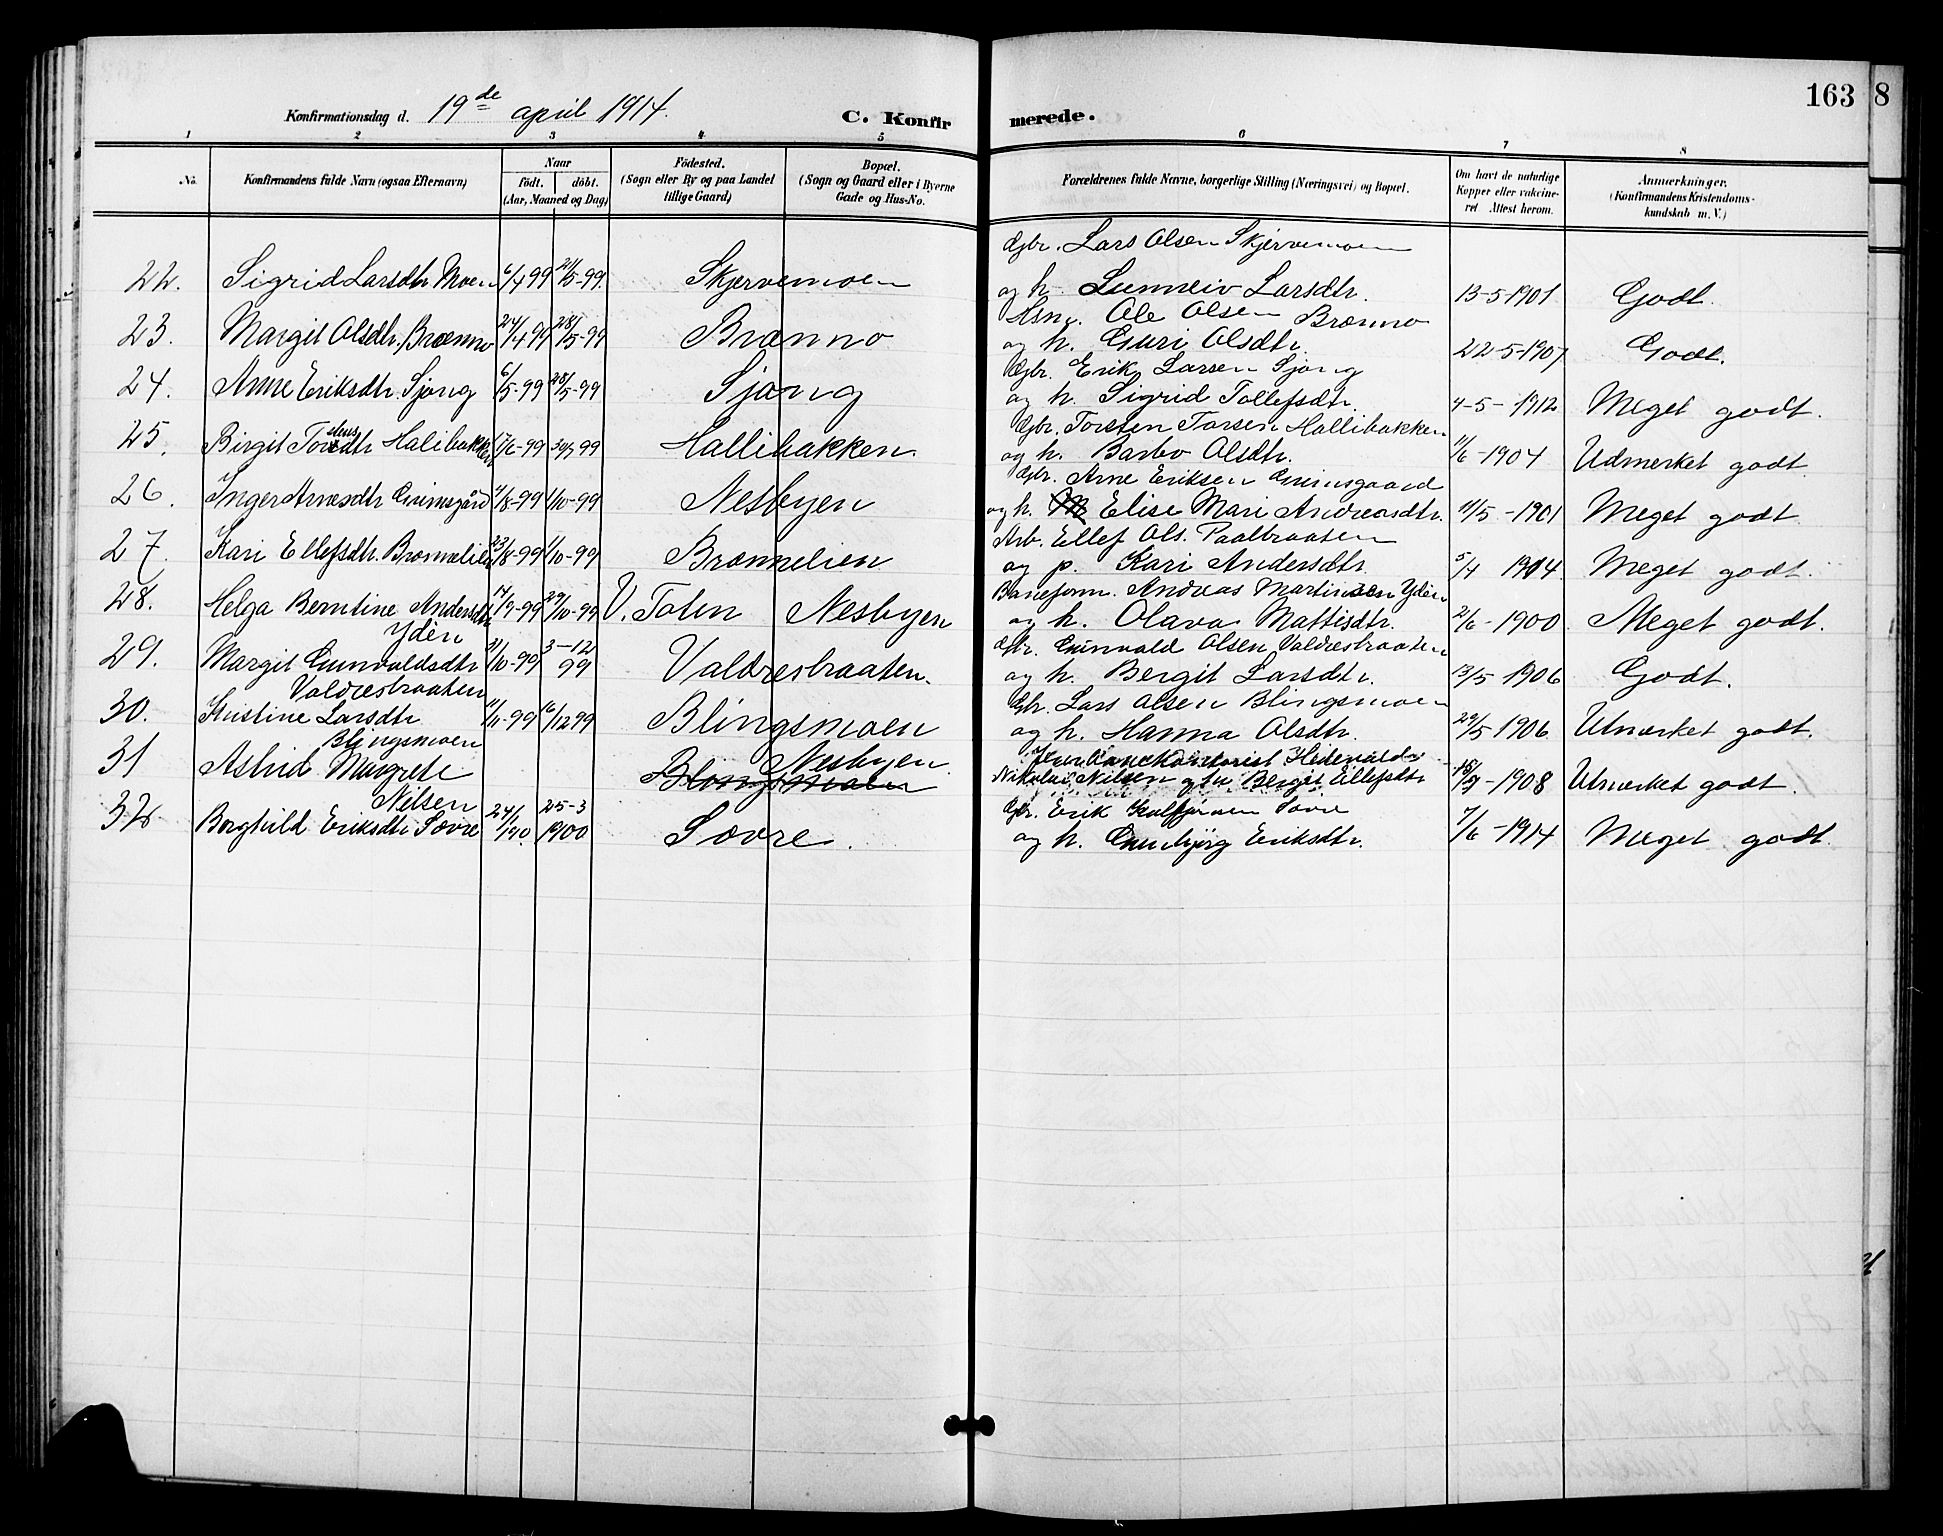 163 8
Konfirmationsdag d. 19de april 1914. C. Konfirmerede.
1 2 3 4 5 6 7 8
No. Konfirmandens fulde Navn (ogsaa Efternavn) Naar födt. döbt. (Aar, Maaned og Dag) Födested. (Sogn eller By og paa Landet tillige Gaard) Bopæl. (Sogn og Gaard eller i Byerne Gade og Hus-No. Forældrenes fulde Navne, borgerlige Stilling (Næringsvei) og Bopæl. Om havt de naturlige Kopper eller vakcineret Attest herom. Anmerkninger. (Konfirmandens Kristendomskundskab m. V.)
Gbr. Lars Olsen Skjervemoen
22. Sigrid Larsdtr Moen 6/4 99 21/5-99 Skjervemoen og h. Sunneiv Larsdtr. 13-5-1901 Godt.
Ole Olsen Brænno
23. Margit Olsdtr. Brænno 24/4 99 28/5-99 Brænno og h. Guri Olsdtr. 22-5-1907 Godt.
Gbr. Erik Larsen Sjong
24. Anne Eriksdtr. Sjong 6/5-99 28/5-99 Sjong og h. Sigrid Tollefsdtr. 4-5-1912 Meget godt.
Gbr. Torsten Torsen Hallibakken
25. Birgit Torstensdtr Halibakken 17/6-99 30/7 99 Hallibakken og h. Barbo Olsdtr. 11/6-1904 Udmerket godt
Gbr. Arne Eriksen Grimsgaard
26. Inger Arnesdtr Grimsgård 4/8-99 1/10-99 Nesbyen og h. Elise Mari Andreasdtr. 11/5-1901 Meget godt
Arb. Ellef Ols. Paalbraaten
27. Kari Ellefsdtr. Brænnelien 23/8-99 1/10-99 Brænnelien og p. Kari Andersdtr. 5/4 1904. Meget godt.
Baneform. Andreas Martinsen Ydèn
28. Helga Berntine Andersdtr Ydèn 14/9-99 29/10-99 V. Toten Nesbyen og h. Olava Mattisdtr. 21/6-1900 Meget godt.
Gbr. Gunvald Olsen Valdresbraaten
29. Margit Gunvaldsdtr Valdresbraaten 31/10-99 3-12 99 Valdresbraaten. og h. Bergit Larsdtr. 13/5 1906 Godt.
Gbr. Lars Olsen Blingsmoen
30. Kristine Larsdtr Blingsmoen 11/11-99 16/12 99 Blingsmoen og h. Hanna Olsdtr. 29/5 1906 Utmerket godt.
31 Astrid Margrete Nilsen Nesbyen Blingsmoen
Nikolai Nilsen og fru Bergit Ellefsdtr 1908 Utmerket godt.
Gbr. Erik Sævre
32. Borghild Eriksdtr Sævre 24/1 1900. 25-3 1900 Sævre. og h. Gunbjørg Eriksdtr. 7/6-1914 Meget godt.